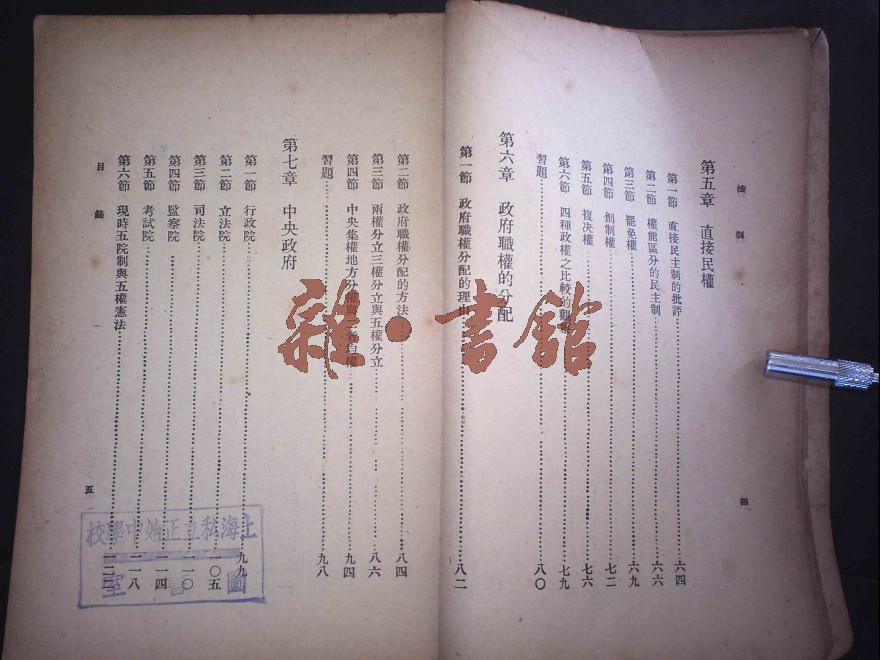 法制
第五章 直接民權
第一節 直接民主制的批評……六四
第二節 權能區分的民主制……六六
第三節 罷免權……六九
第四節 創制權……七二
第五節 複决權……七六
第六節 四種政權之比較的觀察……七九
習題……八〇
第六章 政府職權的分配
第一節 政府職權分配的理由……八二
四
第二節 政府職權分配的方法……八四
第三節 兩權分立三權分立與五權分立……八六
第四節 中央集權地方分權與……九四
習題……九八
第七章 中央政府
第一節 行政院……九九
第二節 立法院……一〇五
第三節 司法院……一一〇
第四節 監察院……一一四
第五節 考試院……一一八
第六節 現時五院制與五權憲法……一二二
目錄
五
雜·書館
上海私立正始中學校
圖書室